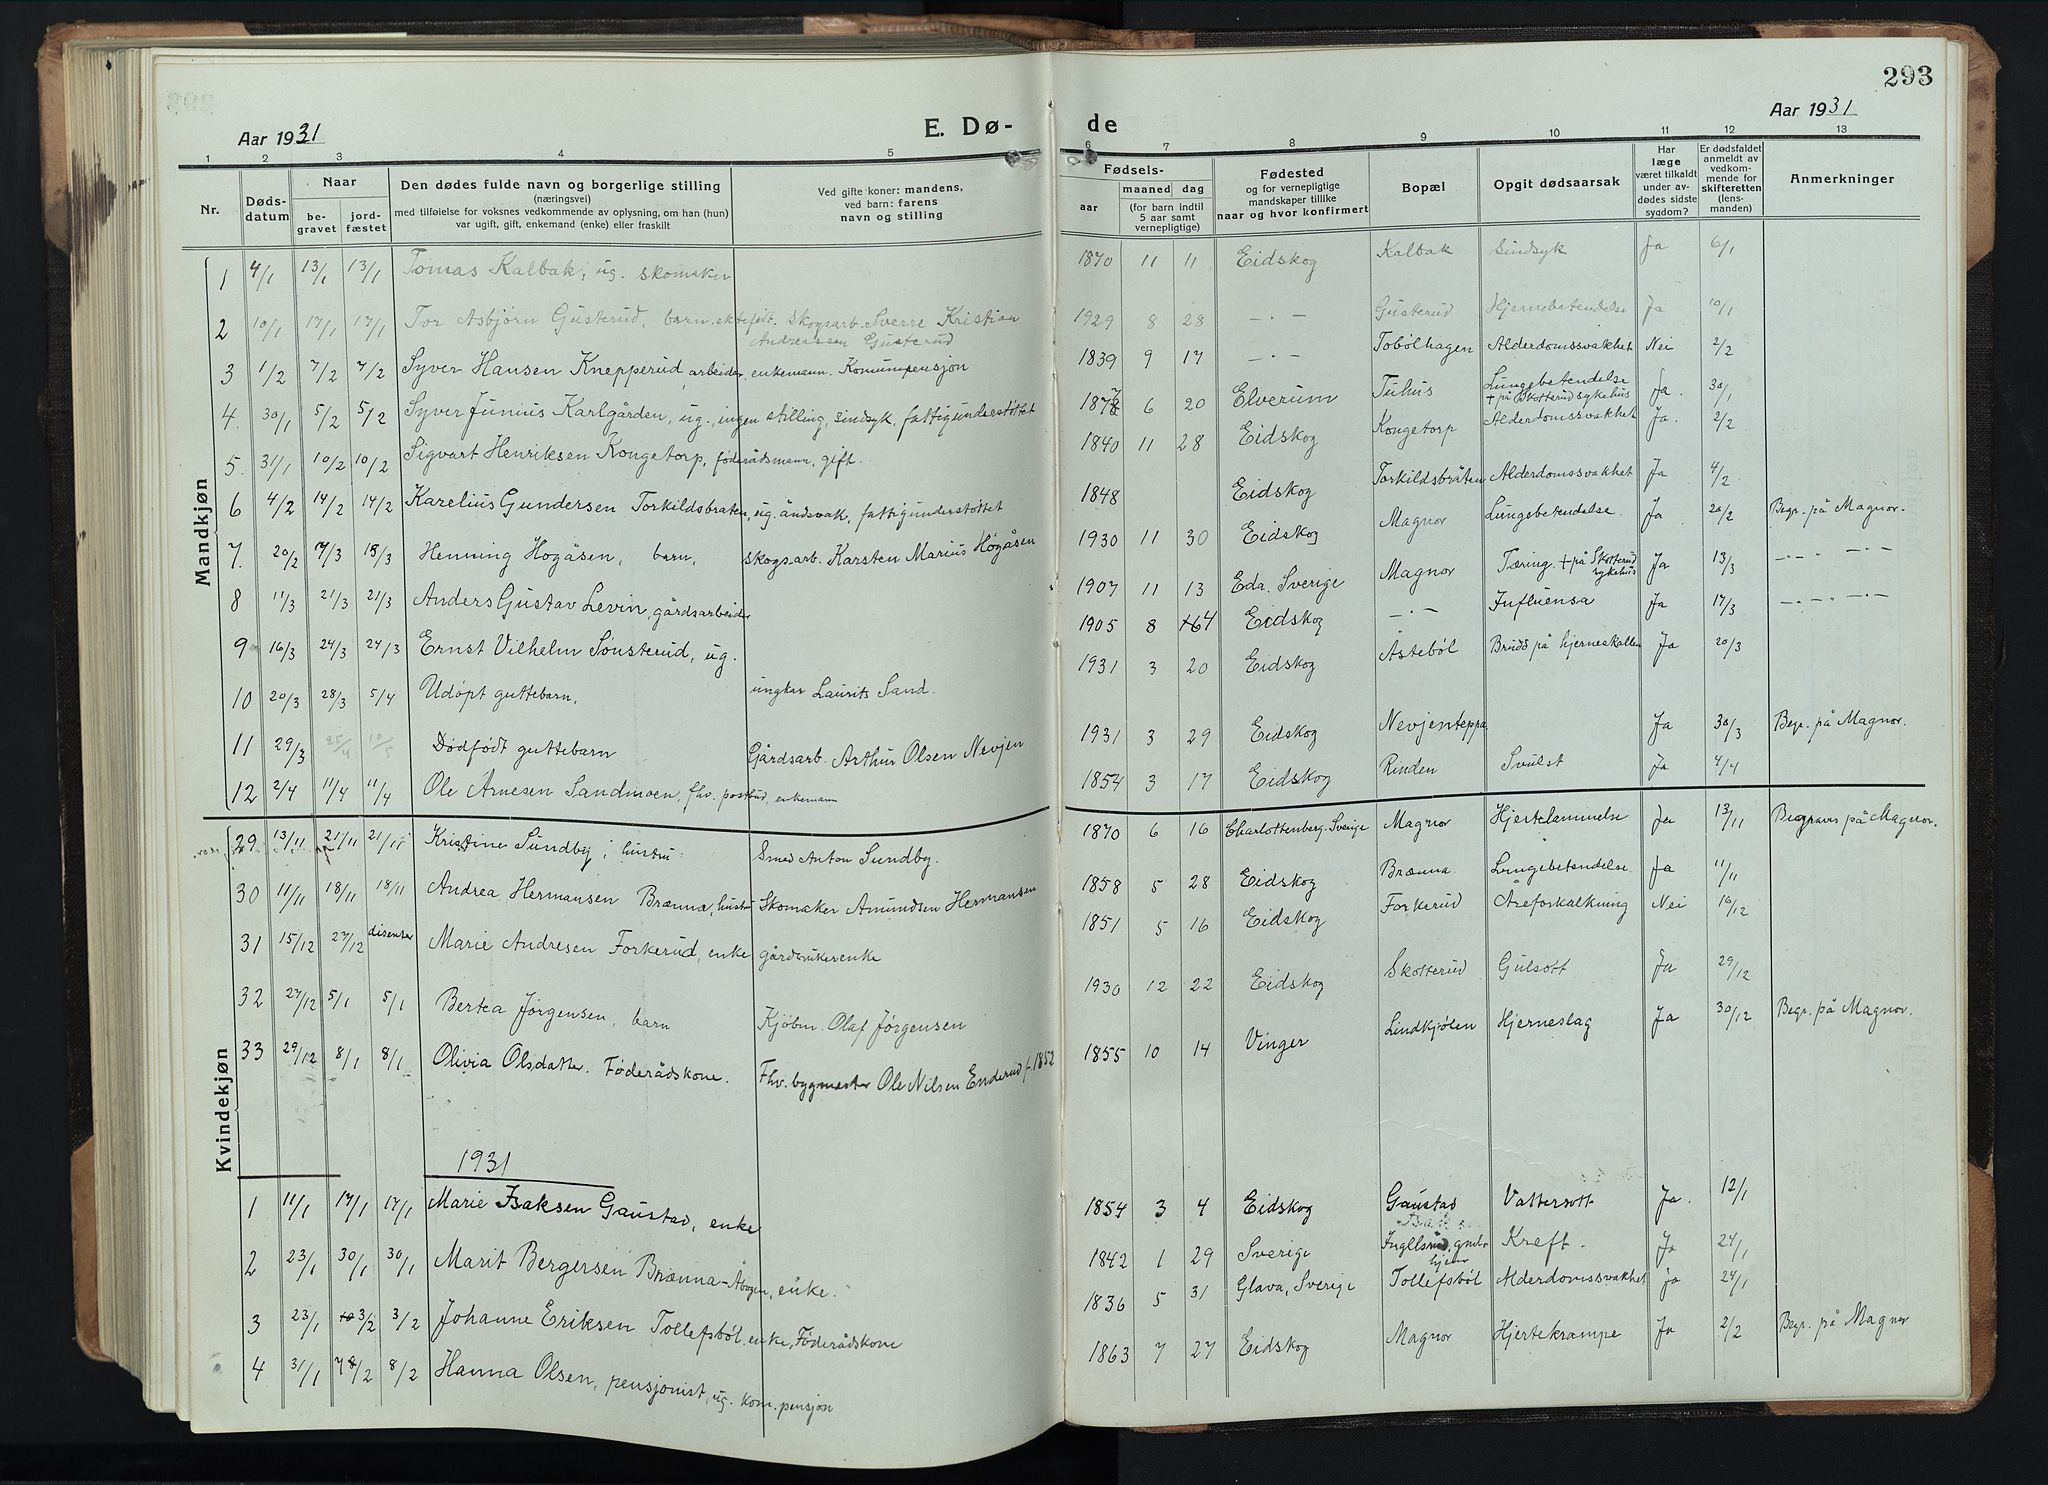 293
Aar 1931
E. Dø-
de
Aar 1931
1 2 3 4 5 6 7 8 9 10 11 12 13
Nr.
Døds-
datum
Naar
be-
gravet
jord-
fæstet
Den dødes fulde navn og borgerlige stilling
(næringsvei)
med tilføielse for voksnes vedkommende av oplysning, om han (hun)
var ugift, gift, enkemand (enke) eller fraskilt
Ved gifte koner: mandens,
ved barn: farens
navn og stilling
Fødsels-
aar
maaned
dag
(for barn indtil
5 aar samt
vernepligtige)
Fødested
og for vernepligtige
mandskaper tillike
naar og hvor konfirmert
Bopæl
Opgit dødsaarsak
Har
læge
været tilkaldt
under av-
dødes sidste
sygdom?
Er dødsfaldet
anmeldt av
vedkom-
mende for
skifteretten
(lens-
manden)
Anmerkninger
Mandkjøn
1 4/1 13/1 13/1 Tomas Kalbak, ug. skomaker 1870 11 11 Eidskog Kalbak Sindsyk Ja 6/1
2 10/1 17/1 17/1 Tor Asbjørn Gusterud, barn, ektefødt. Skogsarb. Sverre Kristian 1929 8 28 -"- Gusterud Hjernebetendelse Ja 10/1
Andreassen Gusterud
3 1/2 7/2 7/2 Syver Hansen Knepperud, arbeider, enkemann. Komunepensjon 1839 9 17 -"- Tobølhagen Alderdomssvakhet Nei 2/2
4. 30/1 5/2 5/2 Syver Junius Karlgården, ug., ingen stilling, sindsyk, fattigunderstøttet 187 6 20 Elverum Tuhus Lungebetendelse Ja. 30/1
+ på Skotterud sykehus
5. 31/1 10/2 10/2 Sigvart Henriksen Kongetorp, føderådsmann, gift. 1840 11 28 Eidskog Kongetorp Alderdomssvakhet Ja. 2/2
6 4/2 14/2 14/2 Karelius Gundersen Torkildsbråten, ug. åndsvak, fattigunderstøttet 1848 Eidskog Torkildsbråten Alderdomssvakhet Ja 4/2
7. 20/2 /3 15/3 Henning Høgåsen, barn, skogsarb. Karsten Marius Høgåsen 1930 11 30 Eidskog Magnor Lungebetendelse. Ja 20/2 Begr. på Magnor.
8 11/3 21/3 21/3 Anders Gustav Levin, gårdsarbeider 1907 11 13 Eda. Sverige Magnor Tæring. + på Skotterud sykehus Ja 13/3 -"- -"-
9 16/3 24/3 24/3 Ernst Vilhelm Sønsterud, ug. 1905 8 Eidskog -"- Influensa Ja 17/3 -"- -"-
10 20/3 28/3 5/4 Udøpt guttebarn. ungkar Laurits Sand. 1931 3 20 Eidskog Åstebøl Brudd på hjerneskallen Ja 20/3
11 29/3 25/4 10/5 Dødfødt guttebarn Gårdsarb. Arthur Olsen Nevjen 1931 3 29 Eidskog Nevjenteppa Ja 30/3 Begr. på Magnor.
12 2/4 11/4 11/4 Ole Arnesen Sandmoen, fhv. postbud, enkemann 1854 3 17 Eidskog Rinden Svulst Ja 4/4
Kvindekjøn
29 13/11 21/11 21/11 Kristine Sundby, hustru. Smed Anton Sundby. 1870 6 16 Charlottenberg. Sverige Magnor Hjertelammelse Ja 13/11 Begraves på Magnor.
30 11/11 18/11 18/11 Andrea Hermansen Brænna, hustru Skomaker Amundsen Hermansen 1858 5 28 Eidskog Brænna Lungebetendelse Ja 11/11
31 15/12 27/12 disenter Marie Andresen Forkerud, enke gårdbrukerenke 1851 5 16 Eidskog Forkerud Åreforkalkning Nei 19/12
32 27/12 5/1 5/1 Bertea Jørgensen, barn Kjøbm. Olaf Jørgensen 1930 12 22 Eidskog Skotterud Gulsott Ja 29/12
33 29/12 8/1 8/1 Olivia Olsdatter. Føderådskone. Fhv. bygmester Ole Nilsen Enderud f. 1852 1855 10 14 Vinger Lindkjølen Hjerneslag Ja 30/12 Begr. på Magnor.
1931
1 11/1 17/1 17/1 Marie Isaksen Gaustad, enke 1854 3 4 Eidskog Gaustad Vattersott Ja. 12/1
2 23/1 30/1 30/1 Marit Bergersen Brænna-Åbogen, enke. 1842 1 29 Sverige Kreft. Ja 24/1
3 23/1 3/2 3/2 Johanne Eriksen Tollefsbøl, enke, Føderådskone 1836 5 31 Glava, Sverige Tollefsbøl Alderdomssvakhet Ja 24/1
4 31/1 8/2 8/2 Hanna Olsen, pensjonist, ug. kom. pensjon 1863 7 27 Eidskog Magnor Hjertekrampe Ja 2/2 Begr. på Magnor